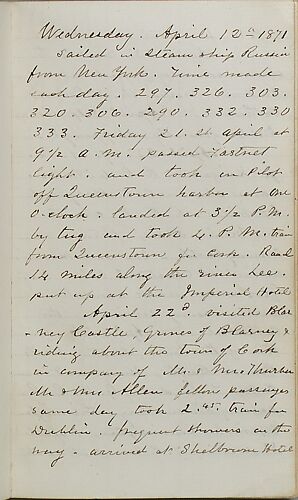 Wednesday. April 12th 1871
Sailed in Steam ship Russia
from New York. Time made
each day. 297. 326. 303.
320. 306. 290. 332. 330
333. Friday 21. st April at
9 1/2 A.M. passed Fastnet
light. and took on Pilot
off Queenstown harbor at One
O-clock. landed at 3 1/2 P.M.
by tug and took 4. P.M. train
from Queenstown for Cork. Road
14 miles along the river Lee.
put up at the Imperial Hotel
April 22d. visited Blar
-ney Castle, Groves of Blarney &
riding about the town of Cork
in company of Mr & Mrs Thurber
Mr & Mrs Allen fellow passengers
same day took 2.45. train for
Dublin. frequent showers on the
way. arrived at Shelbourne Hotel